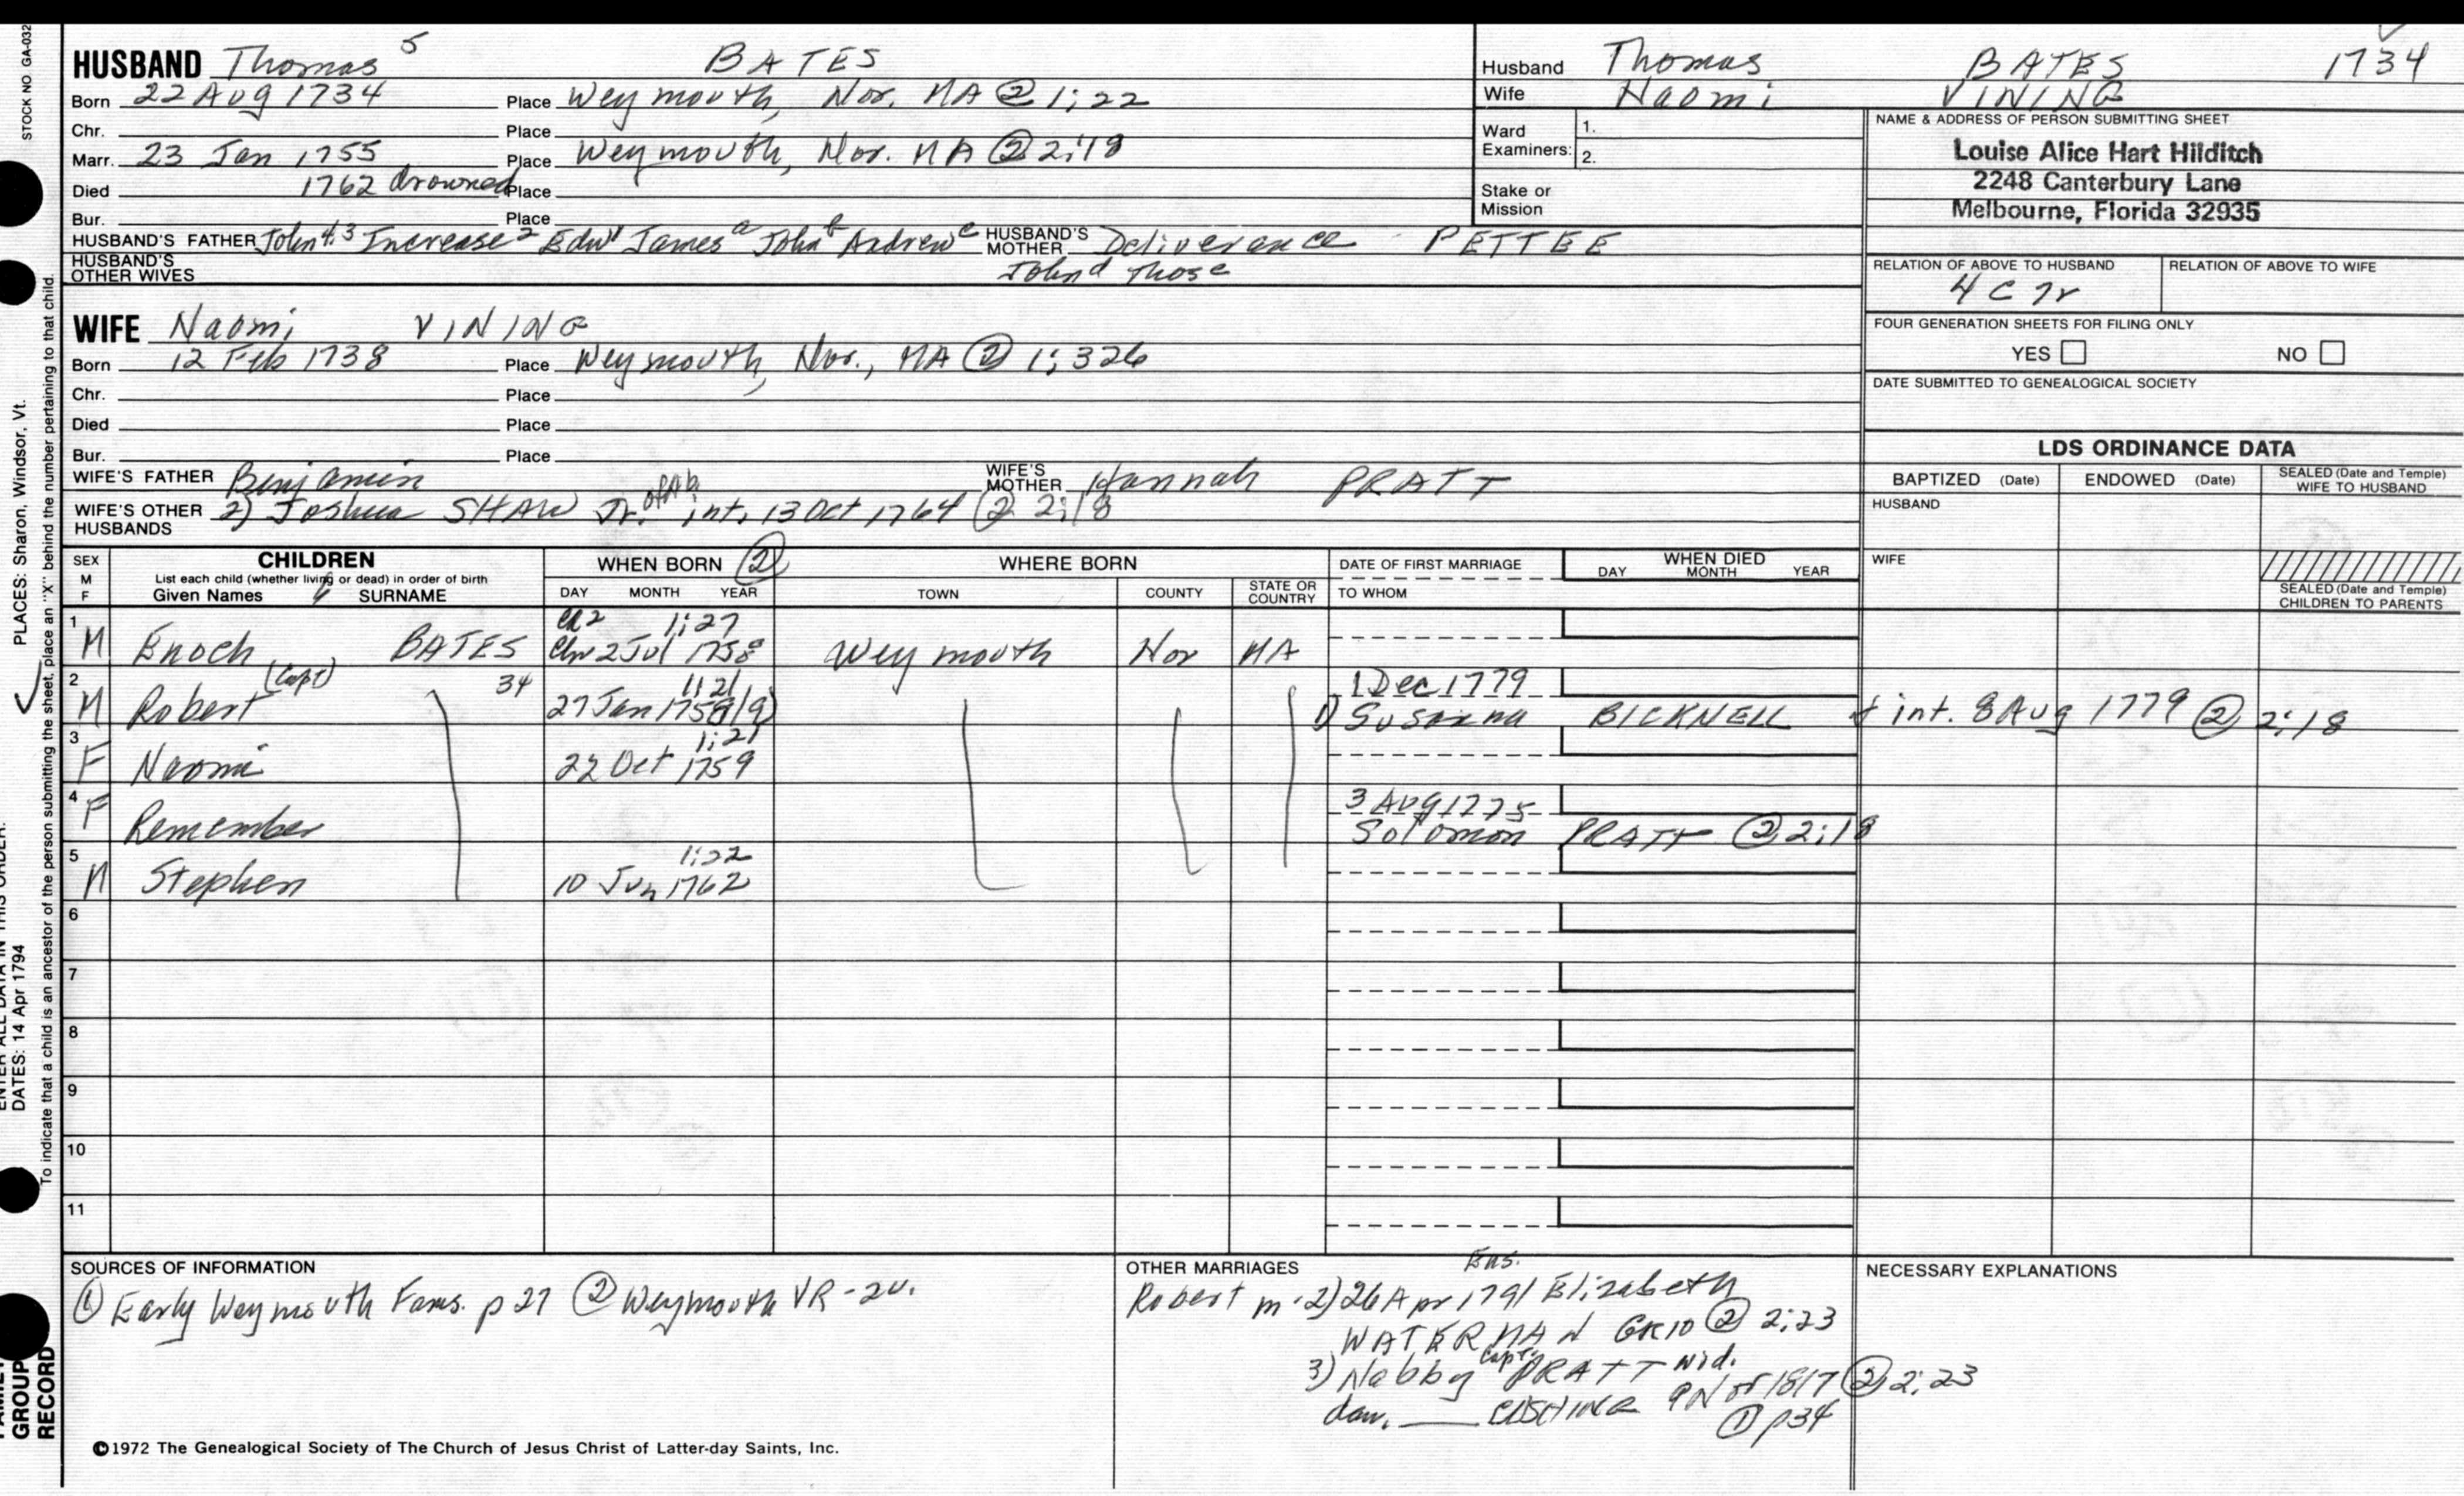 STOCK NO GA-032
HUSBAND Thomas 5 BATES
Born 22 Aug 1734 Place Weymouth, Nor. MA @ 1:22
Chr. Place
Marr. 23 Jan 1755 Place Weymouth, Nor. MA ② 2:18
Died 1762 drowned Place
Bur. Place
HUSBAND'S FATHER John 4.3 Increase 2 Edw 1 James a John b Andrew c HUSBAND'S MOTHER Deliverance PETTEE
HUSBAND'S OTHER WIVES John d Thos e
WIFE Naomi VINING
Born 12 Feb 1738 Place Weymouth, Nor., MA ② 1:326
Chr. Place
Died Place
Bur. Place
WIFE'S FATHER Benjamin WIFE'S MOTHER Hannah PRATT
WIFE'S OTHER HUSBANDS 2) Joshua SHAW Jr. of Ab int. 13 Oct 1764 ② 2:18
Husband Thomas BATES 1734
Wife Naomi VINING
Ward Examiners: 1.
2.
Stake or Mission
NAME & ADDRESS OF PERSON SUBMITTING SHEET
Louise Alice Hart Hilditch
2248 Canterbury Lane
Melbourne, Florida 32935
RELATION OF ABOVE TO HUSBAND RELATION OF ABOVE TO WIFE
4 C 7r
FOUR GENERATION SHEETS FOR FILING ONLY
YES NO
DATE SUBMITTED TO GENEALOGICAL SOCIETY
LDS ORDINANCE DATA
BAPTIZED (Date) ENDOWED (Date) SEALED (Date and Temple) WIFE TO HUSBAND
HUSBAND
WIFE
SEALED (Date and Temple) CHILDREN TO PARENTS
SEX M F
CHILDREN
List each child (whether living or dead) in order of birth
Given Names SURNAME
WHEN BORN ②
DAY MONTH YEAR
WHERE BORN
TOWN COUNTY STATE OR COUNTRY
DATE OF FIRST MARRIAGE
TO WHOM
WHEN DIED
DAY MONTH YEAR
1 CR2 1:27
M Enoch BATES Chr 2 Jul 1758 Weymouth Nor MA
2 (Capt) 34 1:21 1 Dec 1779
M Robert 27 Jan 1758/9) 1) Susanna BICKNELL + int. 8 Aug 1779 ② 2:18
3 1:21
F Naomi 22 Oct 1759
4 3 Aug 1775
F Remember Solomon PRATT ② 2:18
5 1:22
M Stephen 10 Jun 1762
6
7
8
9
10
11
SOURCES OF INFORMATION
① Early Weymouth Fams. p 27 ② Weymouth VR - 2v.
OTHER MARRIAGES Ens.
Robert m. 2) 26 Apr 1791 Elizabeth
WATERMAN GR10 ② 2:23
3) Nabby Capt. PRATT wid.
dau. ___ CUSHING 9 Nov 1817 ② 2:23
① p34
NECESSARY EXPLANATIONS
©1972 The Genealogical Society of The Church of Jesus Christ of Latter-day Saints, Inc.
PLACES: Sharon, Windsor, Vt.
ENTER ALL DATA IN THIS ORDER:
DATES: 14 Apr 1794
To indicate that a child is an ancestor of the person submitting the sheet, place an "X" behind the number pertaining to that child.
FAMILY
GROUP
RECORD